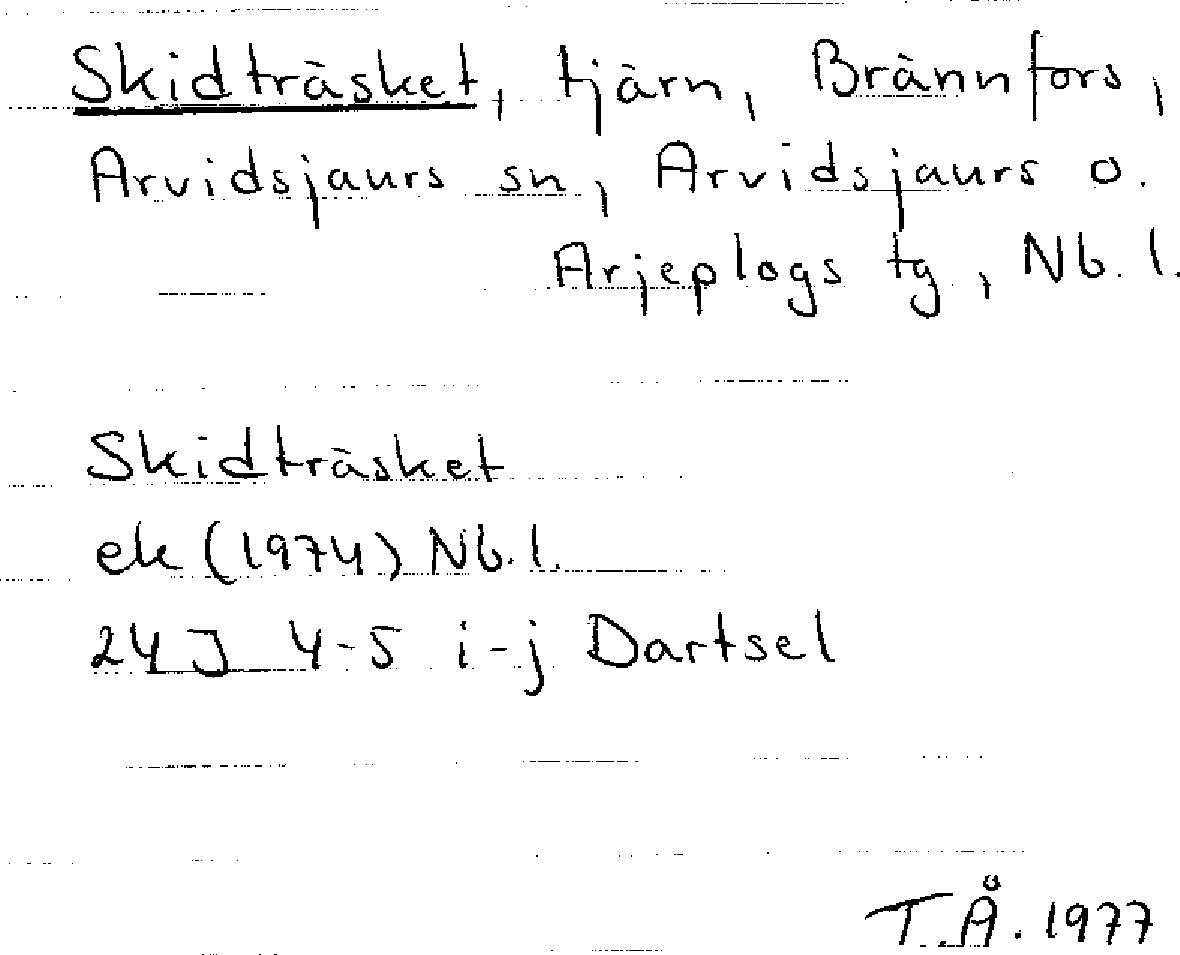 Skidträsket, tjärn, Brännfors,
Arvidsjaurs sn, Arvidsjaurs o.
Arjeplogs tg, Nb. l.
Skidträsket
ek (1974) Nb. l.
24J 4-5 i-j Dartsel
T.Å. 1977